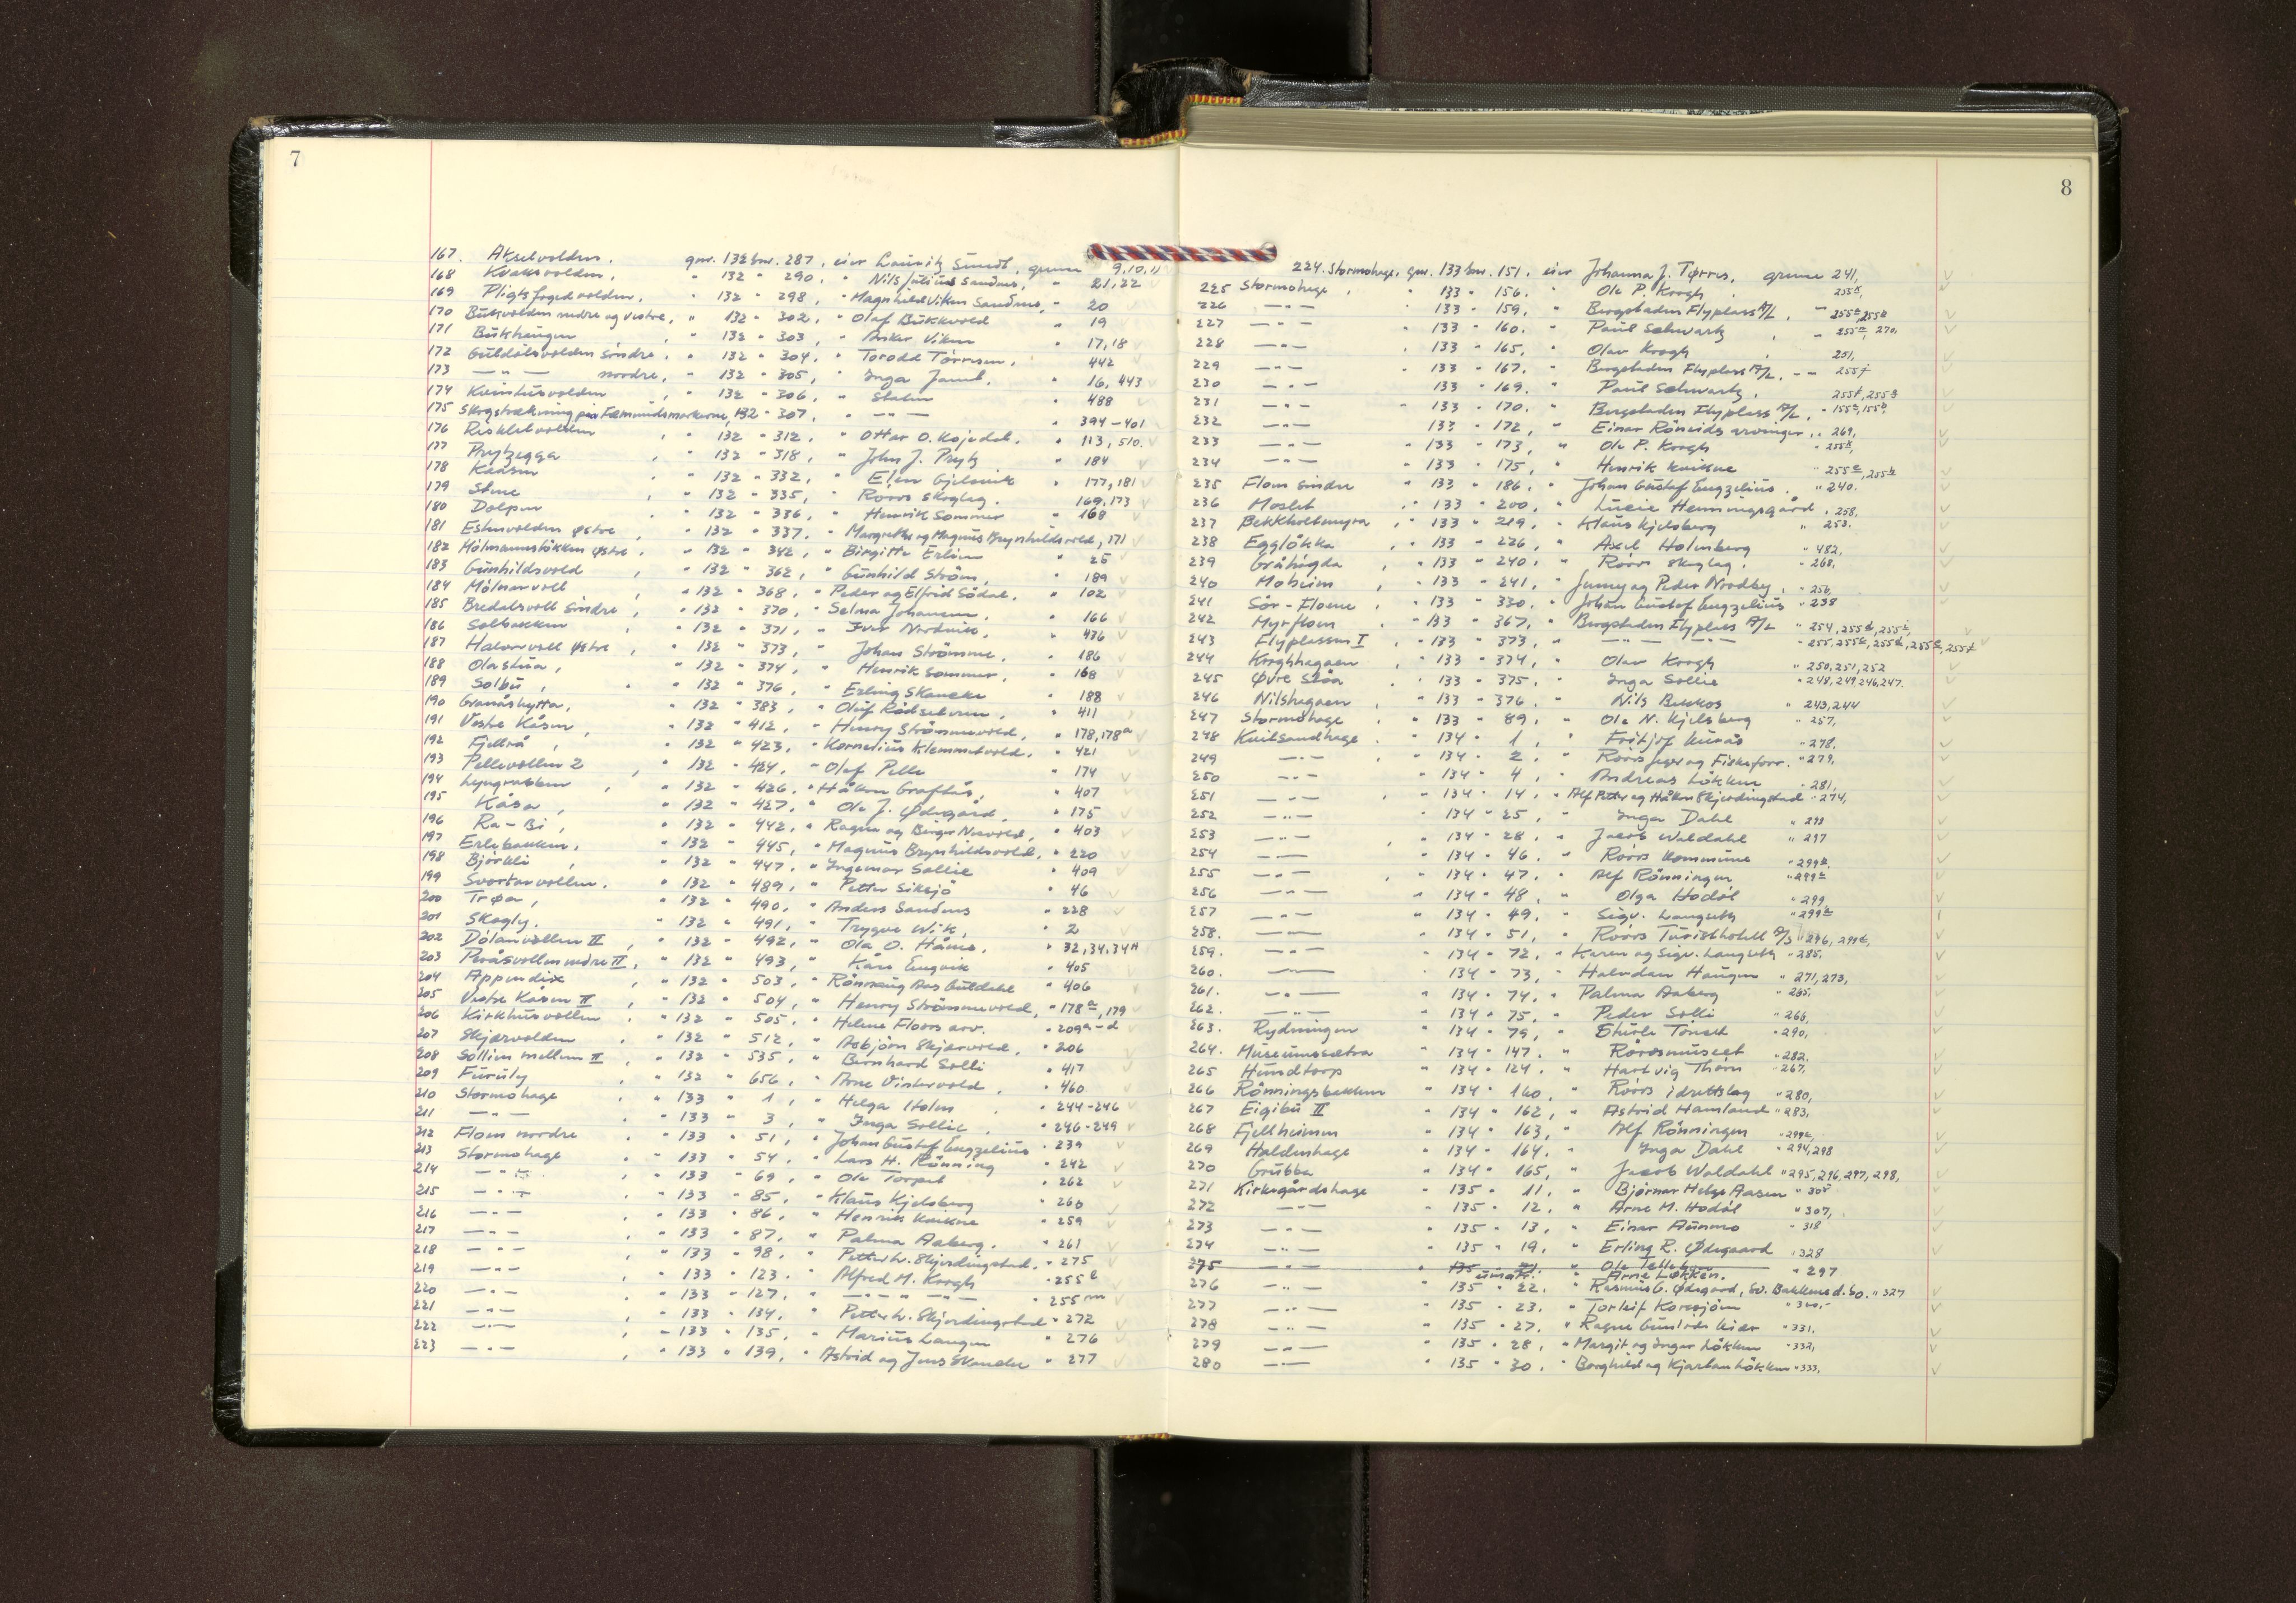 7
167. Akselvolden. gnr. 132 bnr. 287, eier Lauritz Smedt, grense 9,10,11
168 Kvaksvolden, " 132 " 290. " Nils Julius Sandnes, " 21,22
169 Pligtsfogedvolden, " 132 " 298, " Magnhild Viken Sandnes, " 20
170 Bukkvolden nedre og vestre, " 132 " 302, " Olaf Bukkvold " 19
171 Bukkhaugen " 132 " 303, " Asker Viken " 17,18
172 Guldalsvolden søndre, " 132 " 304, " Torodd Tørresen, 442
173 — " — nordre, " 132 " 305, " Inga Jamt, " 16, 443
174 Kvinhusvolden " 132 " 306, " Staten " 488
175 Skogstrækning paa Fæmundsmarkerne, 132 " 307, " — " — " 394-401
176 Riskletvolden , " 132 " 312, " Ottar O. Kojedal, " 113, 510.
177 Prytzegga , " 132 " 318, " John J. Prytz " 184
178 Kaasen " 132 " 332, " Elen Gjelsvik " 177,181
179 Stene , " 132 " 335, " Røros skoglag. 169,173
180 Dalpen " 132 " 336, " Henrik Sommer " 168
181 Estenvolden østre , " 132 " 337. " Margrethe og Magnus Brynhildsvold, 171
182 Holmannsløkken østre. " 132 " 342, " Birgitte Erlien " 25
183 Gunhildsvold , " 132 " 362, " Gunhild Strøm, " 189
184 Molnarvoll , " 132 " 368, " Peder og Elfrid Sødal, " 102
185 Bredalsvoll søndre , " 132 " 370, " Selma Johansen, " 166
186 Solbakken " 132 " 371, " Ivar Nordvik, " 476
187 Halvorvoll østre , " 132 " 373, " Johan Strømme, " 186
188 Olastua , " 132 " 374, " Henrik Sommer, " 168
189 Solbu , " 132 " 376, " Erling Skancke " 188
190 Granåshytta, " 132 " 383, " Oluf Rødselven, " 411
191 Vestre Kåsen , " 132 " 412, " Henry Strømmevold, " 178,178a
192 Fjellrå , " 132 " 423, " Kornelius Klemmetvold, " 421
193 Pellevollen 2 , " 132 " 424, " Olaf Pelle " 174
194 Lyngrabben , " 132 " 426, " Håkon Graftås, " 407
195 Kåsa , " 132 " 427, " Ole J. Ødegård, " 175
196 Ra-Bi , " 132 " 442, " Ragna og Birger Norvold, " 403
197 Erlibakken, " 132 " 445, " Magnus Brynhildsvold, " 220
198 Bjørkli , " 132 " 447, " Ingemar Sollie " 409
199 Svortarvollen, " 132 " 489, " Petter Siksjø " 46
200 Trøa, " 132 " 490, " Anders Sandnes " 228
201 Skogly, " 132 " 491, " Trygve Wik, " 2
202 Dølanvollen II , " 132 " 492, " Ola O. Hånes, " 32,34,34a
203 Peråsvollen nedre II, " 132 " 493, " Kåre Engvik " 405
204 Appendix , " 132 " 503, " Rønnaug Aas Guldahl " 406
205 Vestre Kåsen II , " 132 " 504, " Henry Strømmevold, " 178a, 179
206 Kirkhusvollen , " 132 " 505, " Helene Floors arv. " 209a-d
207 Skjærvolden , " 132 " 512, " Asbjørn Skjærvold, " 206
208 Sollien mellem II , " 132 " 535, " Bernhard Solli " 417
209 Furuly , " 132 " 656, " Arne Vintervold , " 460
210 Stormohage , " 133 " 1, " Helga Holm , " 244-246
211 — " — , " 133 " 3, " Inga Sollie , " 246-249
212 Floen nordre , " 133 " 51, " Johan Gustaf Engzelius " 239
213 Stormohage , " 133 " 54, " Lars H. Rønning " 242
214 — " — " 133 " 69, " Ole Torpet " 262
215 — " — , " 133 " 85, " Klaus Kjelsberg " 260
216 — " — , " 133 " 86, " Henrik Kvikne " 259
217 — " — , " 133 " 87, " Palma Aaberg. " 261
218 — " — , " 133 " 98, " Petter L. Skjerdingstad, " 275
219 — " — , " 133 " 123. " Alfred M. Krogh " 255l
220 — " — , " 133 " 127, " — " — " — " 255m
221 — " — , " 133 " 134, " Petter L. Skjerdingstad " 272
222 — " — , " 133 " 135, " Marius Langen " 276
223 — " — , " 133 " 139, " Astrid og Jens Skancke " 277
8
224. Stormohage, gnr. 133 bnr. 151, eier Johanna J. Tørres, grense 241,
225 Stormohage , " 133 " 156. " Ole P. Krogh , 255k,
226 — " — " 133 " 159, " Bergstaden Flyplass A/L , " 255a, 255b
227 — " — " 133 " 160. " Paul Schwartz , " 255c, 270.
228 — " — " 133 " 165, " Olav Krogh , 251,
229 — " — " 133 " 167. " Bergstaden Flyplass A/L. " 255j
230 — " — 133 " 169. " Paul Schwartz , 255f, 255g
231 — " — " 133 " 170. " Bergstaden Flyplass A/L, " 155a, 155b,
232 — " — 133 " 172, " Einar Røneids arvinger, " 269,
233 — " — " 133 " 173, " Ole P. Krogh " 255k,
234 — " — " 133 " 175, " Henrik Kvikne " 255c, 255h
235 Floen søndre " 133 " 186. " Johan Gustaf Engzelius . " 240.
236 Moslet , " 133 " 200, " Lucie Henningsgård , 258,
237 Bekkholtmyra , " 133 " 219, " Klaus Kjelsberg " 253.
238 Eggløkka , " 133 " 226, " Axel Holmberg " 482,
239 Gråhøgda , " 133 " 240. " Røros skoglag. " 268,
240 Moheim , " 133 " 241, " Jenny og Peder Nordby , " 256,
241 Sør-Floene , " 133 " 330. " Johan Gustaf Engzelius " 238
242 Myrfloen , " 133 " 367, " Bergstaden Flyplass A/L " 254, 255d, 255i,
243 Flyplassen I , " 133 " 373, " — " — " — " 255, 255c, 255d, 255e, 255f
244 Kroghhagaen , " 133 " 374, " Olav Krogh " 250,251,252
245 Øvre Støa , " 133 " 375, " Inga Sollie " 248,249,246,247.
246 Nilshagaen , " 133 " 376, " Nils Bekkos " 243,244
247 Stormohage , " 133 " 89, " Ole N. Kjelsberg " 257,
248 Kvitsandhage , " 134 " 1, " Fritjof Kurås " 278,
249 — " — , " 134 " 2, " Røros jeger og Fiskeforr. " 279,
250 — " — " 134 " 4, " Andreas Løkken " 281,
251 — " — , " 134 " 14, " Alf Petter og Håkon Skjerdingstad " 274,
252 — " — " 134 " 25, " Inga Dahl " 293
253 — " — , " 134 " 28, " Jacob Waldahl " 297
254 — " — " 134 " 46. " Røros Kommune " 299b,
255 — " — , " 134 " 47, " Alf Rønningen " 299c
256 — " — " 134 " 48, " Olga Hodøl " 299,
257 — " — " 134 " 49, " Sigv. Langseth " 299a
258. — " — " 134 " 51, " Røros Turisthotell A/S " 296, 299d,
259. — " — " 134 " 72, " Karen og Sigv. Langseth " 285,
260. — " — " 134 " 73, " Halvdan Haugen " 271,273,
261. — " — " 134 " 74, " Palma Aaberg " 265,
262. — " — " 134 " 75, " Peder Solli " 266,
263. Rydningen " 134 " 79, " Sturle Tønseth " 290,
264. Museumssætra " 134 " 147. " Rørosmuseet " 282.
265 Hundtorp " 134 " 124. " Hartvig Thorn " 267,
266 Rønningsbakken " 134 " 160, " Røros idrettslag " 280,
267 Eigibu II " 134 " 162, " Astrid Hamland " 283,
268 Fjellheimen " 134 " 163, " Alf Rønningen " 299c,
269 Haldenhage " 134 " 164. " Inga Dahl " 294,298
270 Grubba " 134 " 165, " Jacob Waldahl " 295,296,297,298,
271 Kirkegårdshage " 135 " 11, " Bjørnar Helge Aasen " 305
272 — " — " 135 " 12, " Arne M. Hodøl " 307,
273 — " — " 135 " 13, " Einar Aunmo " 318
274 — " — " 135 " 19, " Erling R. Ødegaard " 328
275 " 135 " Ole Telleb
umatr. " Arne Løkken. " 297
276 — " — " 135 " 22. " Rasmus G. Ødegaard, Sv. Bakkens d.bo. " 327
277 — " — " 135 " 23. " Torleif Korssjøen " 340,-
278 — " — " 135 " 27, " Ragna Gunlede Kiær " 331.
279 — " — " 135 " 28, " Margit og Ingar Løkken " 332,
280 — " — " 135 " 30. " Borghild og Kjartan Løkken " 333,